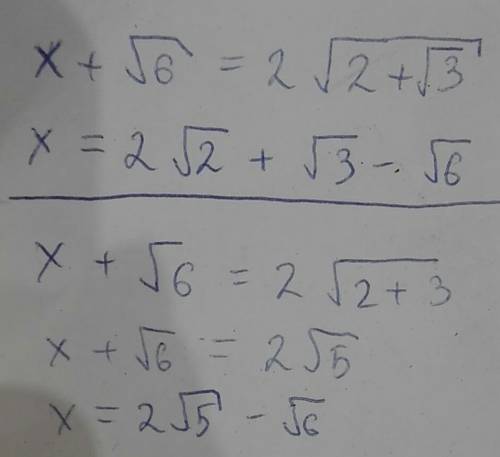 x + √6 = 2 √(2 + √3)
x = 2 √2 + √3 - √6
x + √6 = 2 √(2 + 3)
x + √6 = 2 √5
x = 2 √5 - √6